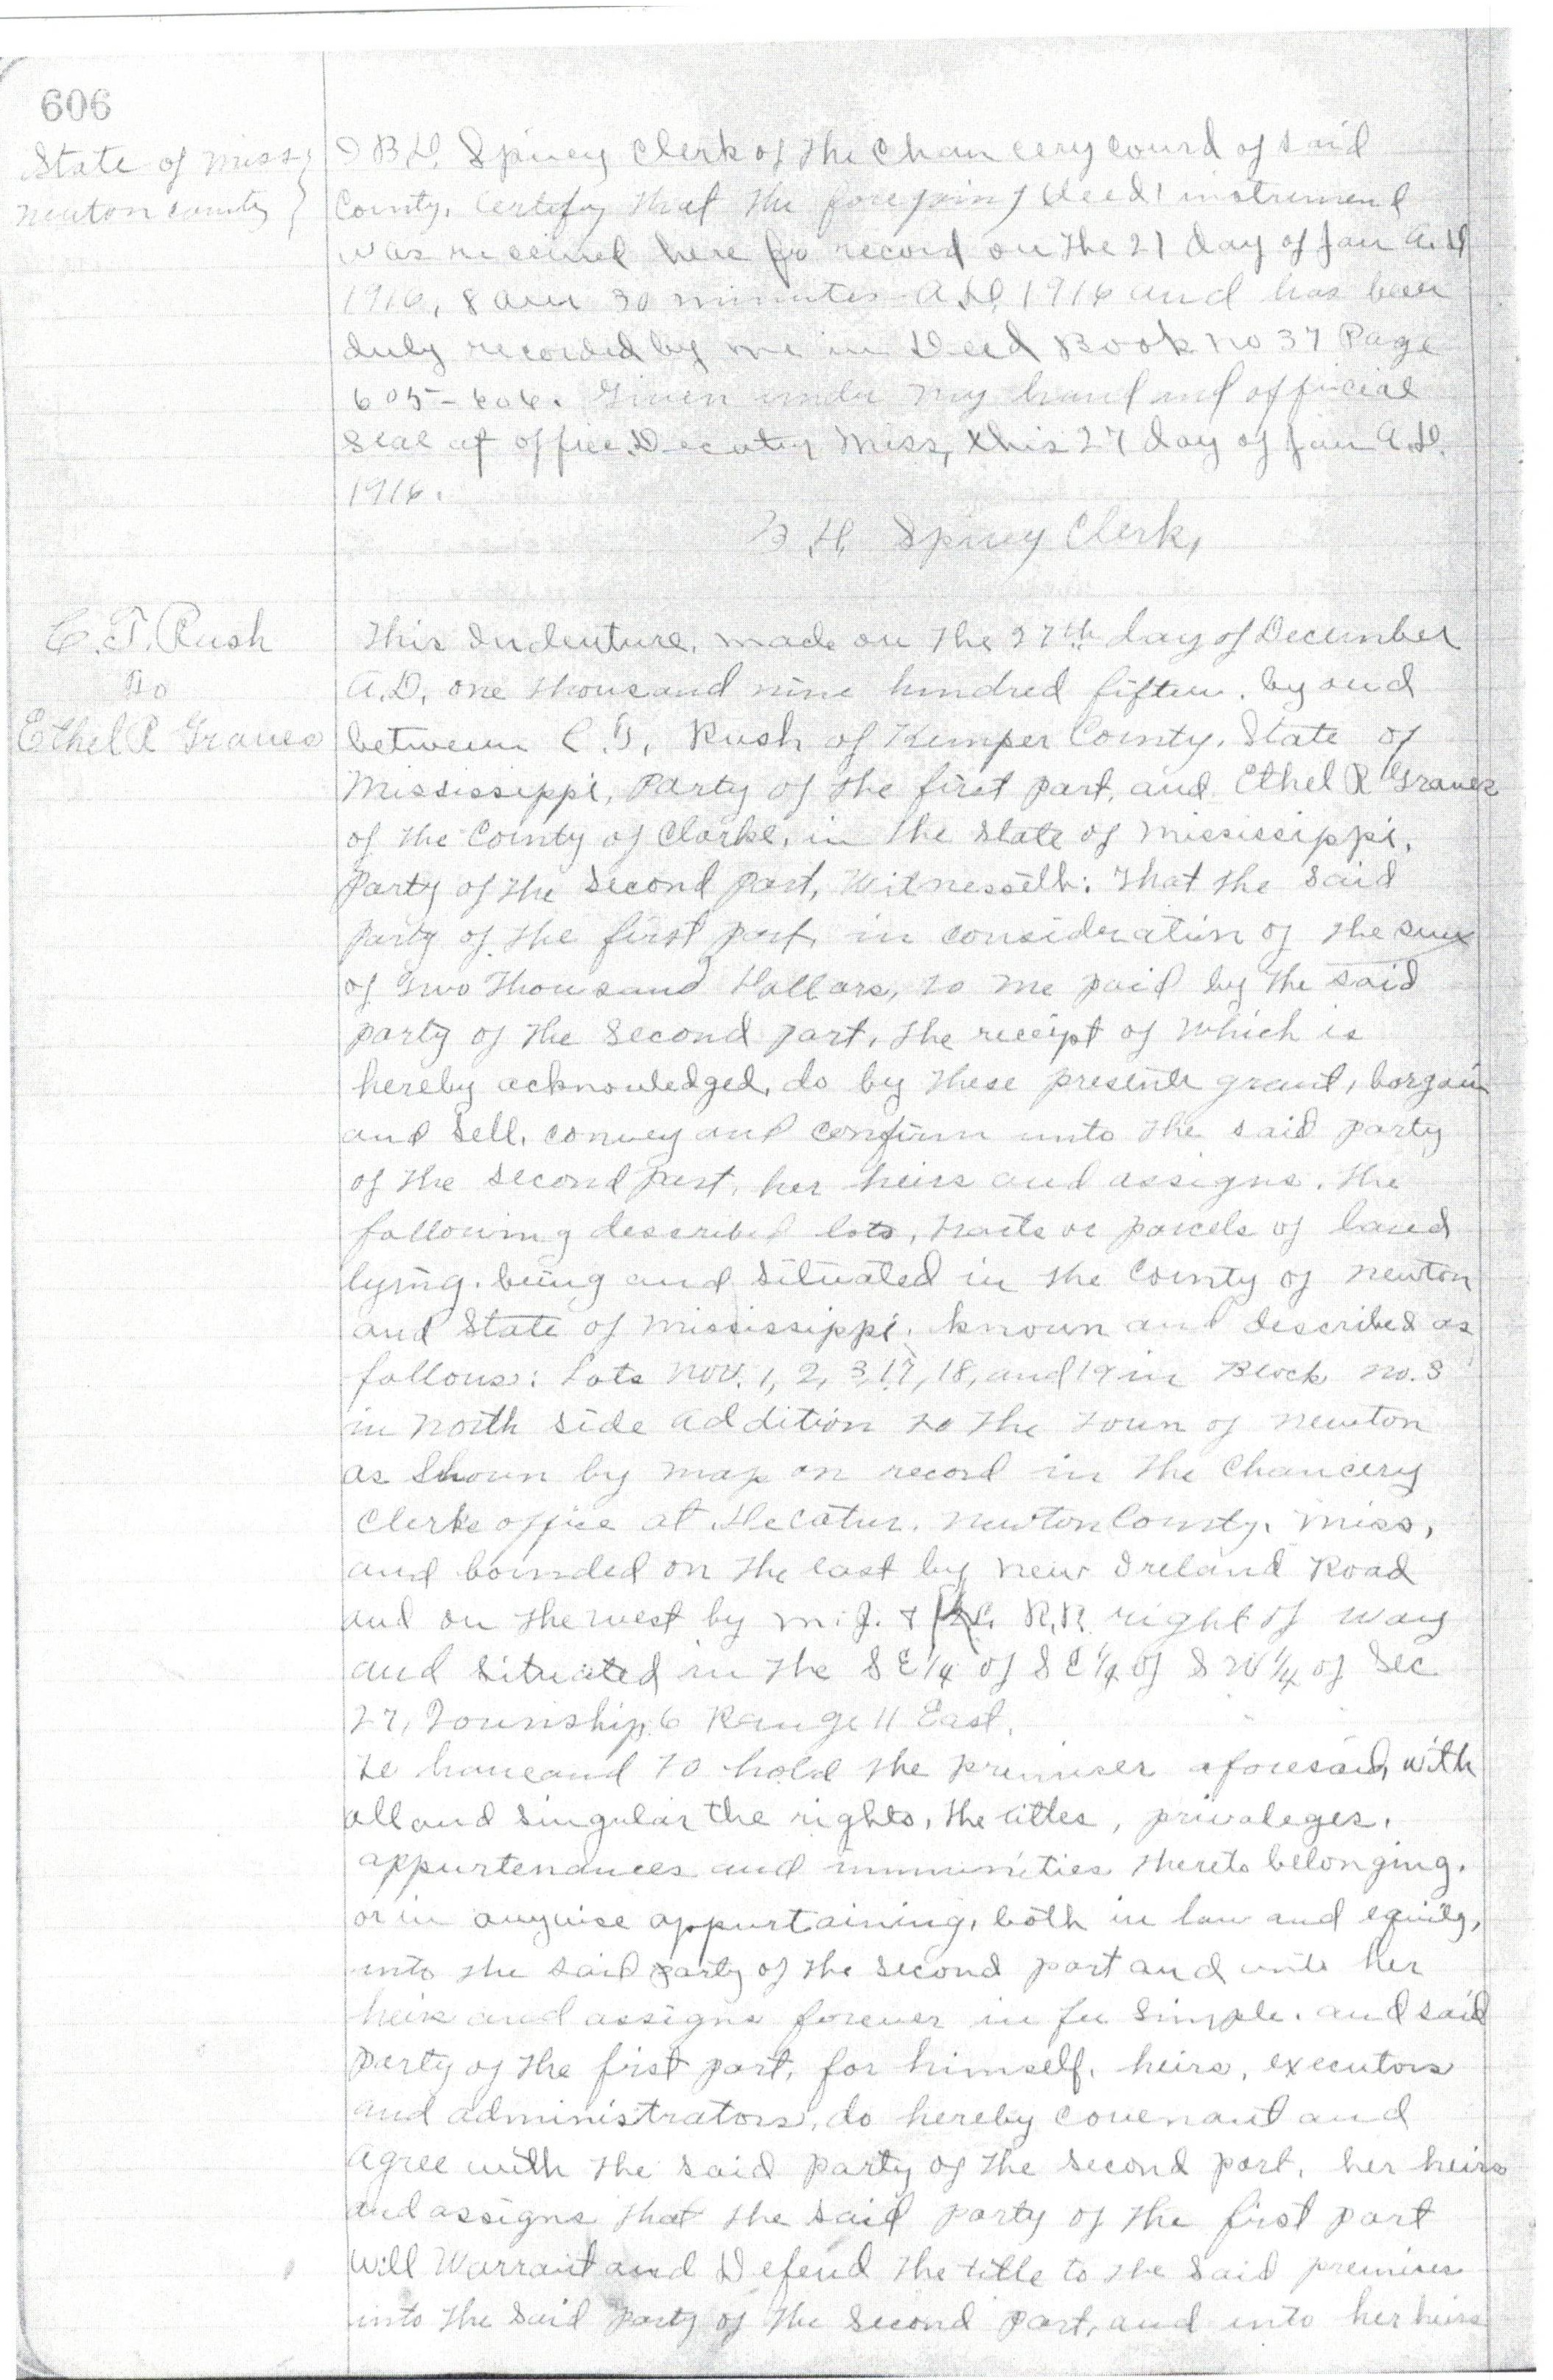 606
State of Miss
Newton county
I B.H. Spivey Clerk of the Chancery Courd of said
County, Certify that the foregoing deed instrument
was received here for record on the 21 day of Jan A.D
1916, 8 30 minutes A.D. 1916 and has been
duly recorded by me in Deed Book no 37 Page
605-606. Given under my hand and official
seal at office Decatur Miss, this 27 day of Jan A.D.
1916.
B.H. Spivey Clerk,
C.T. Rush
To
Ethel R Graves
This Indenture, made on the 27th day of December
A.D. one thousand nine hundred fifteen. by and
between C.T. Rush of Kemper County, State of
Mississippi, Party of the first part, and Ethel R Graves
of the County of Clarke, in the State of Mississippi,
Party of the second part, Witnesseth: That the said
party of the first part, in consideration of the sum
of Two Thousand Dollars, to me paid by the said
party of the second part, the receipt of which is
hereby acknowledged, do by these presents grant, bargain
and sell, convey and confirm unto the said party
of the second part, her heirs and assigns. the
following described lots, tracts or parcels of land
lying, being and situated in the County of Newton
and State of Mississippi, known and described as
follows: Lots Nos. 1, 2, 3, 17, 18, and 19 in Block no. 3
in North Side Addition to the Town of Newton
as shown by map on record in the Chancery
Clerks office at Decatur, Newton County, Miss,
and bounded on the east by New Ireland Road
and on the west by M.J. & K.C. R.R. right of way
and situated in the SE 1/4 of SE 1/4 of SW 1/4 of Sec
27, Township 6 Range 11 East.
To have and to hold the premises aforesaid, with
all and singular the rights, the titles, privaleges,
appurtenances and immunities thereto belonging.
or in anywise appurtaining, both in law and equity,
unto the said party of the second part and unto her
heirs and assigns forever in fee simple. and said
party of the first part, for himself, heirs, executors
and administrators, do hereby covenant and
agree with the said party of the second part, her heirs
and assigns that the said party of the first part
will Warrant and Defend the title to the said premises
unto the said party of the second part, and unto her heirs